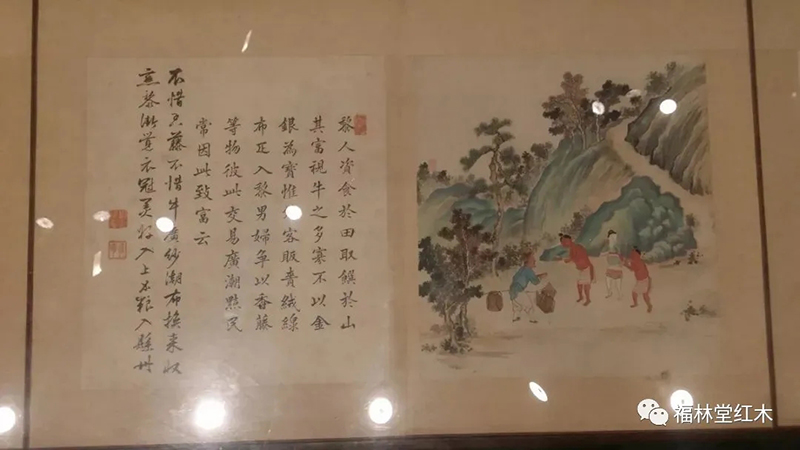 黎人資食於田取饌於山
其富視牛之多寡不以金
銀為寶惟客販賣絨線
布疋入黎男婦爭以香藤
等物彼此交易廣潮黠民
常因此致富云
不惜藤不惜牛廣紗潮布換來收
黎漸覺衣冠美入上粮入縣州
福林堂红木